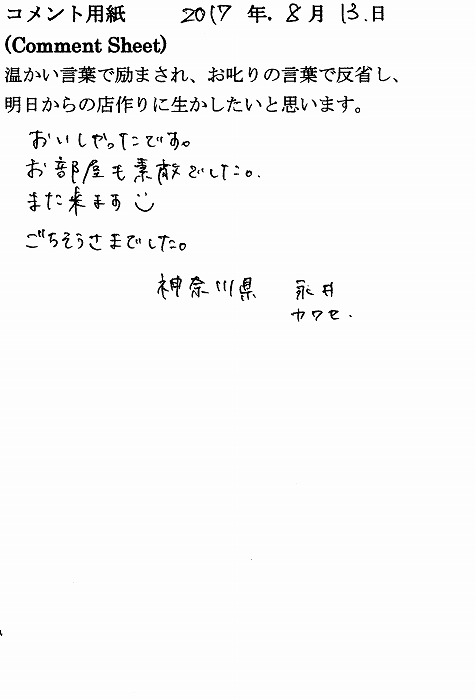 コメント用紙 2017 年. 8 月 13. 日
(Comment Sheet)
温かい言葉で励まされ、お叱りの言葉で反省し、
明日からの店作りに生かしたいと思います。
おいしかったです。
お部屋も素敵でした。
また来ます
ごちそうさまでした。
神奈川県 永井
カワセ.